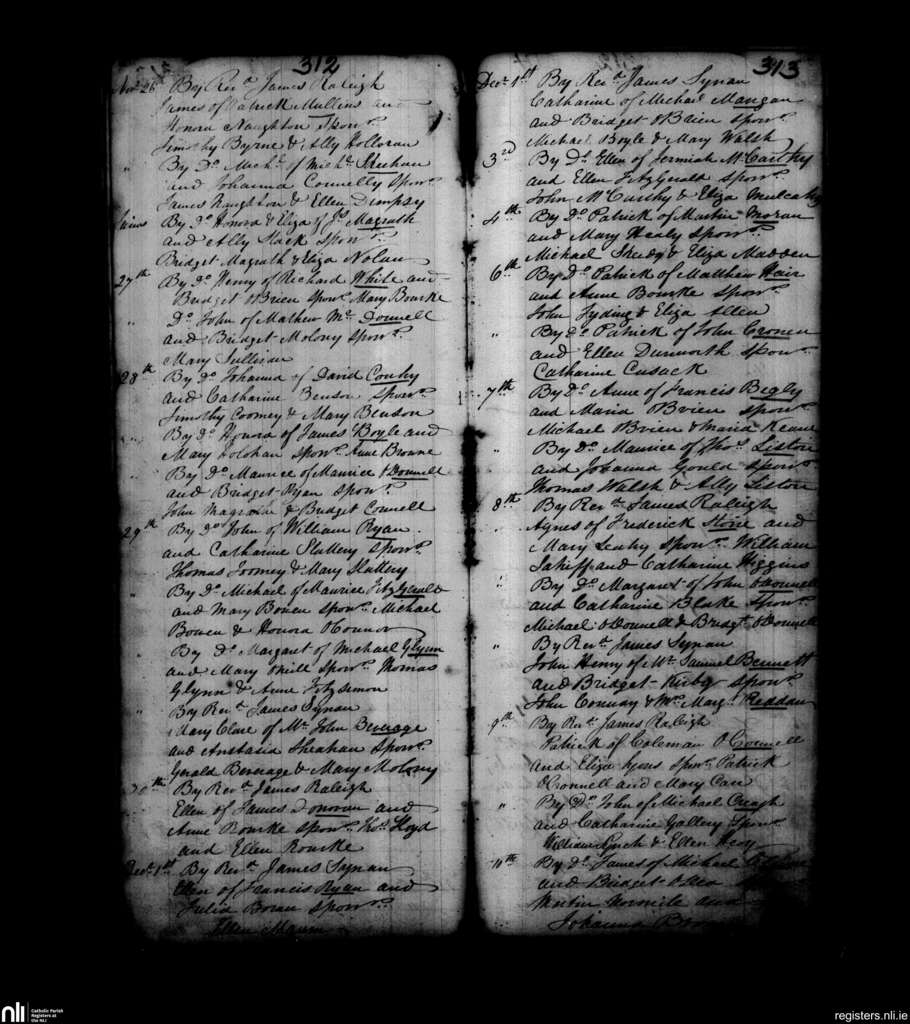 312
Nov. 26 By Revd. James Raleigh
James of Patrick Mullins and
Honora Naughton Sponrs.
Timothy Byrne & Ally Holloran
" By Do. Michl. of Michl. Sheehan
and Johanna Connelly Sponrs.
James Naughton & Ellen Dempsy
By Do. Honora & Eliza of Js. Magrath
and Ally Slack Sponrs.
Bridget Magrath & Eliza Nolan
27th By Do. Henry of Richard White and
Bridget OBrien Sponrs. Mary Bourke
" Do. John of Mathew Mc. Donnell
and Bridget Molony Sponrs.
Mary Sullivan
28th By Do. Johanna of David Conhy
and Catharine Benson Sponrs.
Timothy Coomey & Mary Benson
" By Do. Honora of James Boyle and
Mary Holohan Sponrs. Anne Browne
By Do. Maurice of Maurice ODonnell
and Bridget Ryan Sponrs.
John Magrath & Bridget Connell
29th By Do. John of William Ryan
and Catharine Slattery Sponrs.
Thomas Toomey & Mary Slattery
" By Do. Michael of Maurice FitzGerald
and Mary Bowen Sponrs. Michael
Bowen & Honora OConnor
" By Do. Margaret of Michael Glynn
and Mary Mill Sponrs. Thomas
Glynn & Anne Fitzsimon
" By Revd. James Synan
Mary Clare of Mr. John Beverage
and Anstatia Sheahan Sponrs.
Gerald Beverage & Mary Molony
30th By Revd. James Raleigh
Ellen of James Donovan and
Anne Rourke Sponrs. Thos. Lloyd
and Ellen Rourke
Decr. 1st By Revd. James Synan
Ellen of Francis Ryan and
Julia Boran Sponrs.
Ellen
313
Decr. 1st By Revd. James Synan
Catharine of Michael Mangan
and Bridget OBrien Sponrs.
Michael Boyle & Mary Walsh
3rd By Do. Ellen of Jermiah McCarthy
and Ellen FitzGerald Sponrs.
John McCarthy & Eliza Mulcahy
4th By Do. Patrick of Martin Moran
and Mary Healy Sponrs.
Michael Sheedy & Eliza Madden
6th By Do. Patrick of Matthew Hair
and Anne Bourke Sponrs.
John Lyding & Eliza Allen
" By Do. Patrick of John Cronen
and Ellen Dunworth Sponrs.
Catharine Cusack
7th By Do. Anne of Francis Begly
and Maria OBrien Sponrs.
Michael OBrien & Maria Keane
" By Do. Maurice of Thos. Liston
and Johanna Gould Sponrs.
Thomas Walsh & Ally Liston
8th By Revd. James Raleigh
Agnes of Frederick Stone and
Mary Leahy Sponrs. William
and Catharine Higgins
" By Do. Margaret of John ODonnell
and Catharine Blake Sponrs.
Michael ODonnell & Bridgt. ODonnell
" By Revd. James Synan
John Henry of Mr. Samuel Bennett
and Bridget Kirby Sponrs.
John Conway & Mrs. Margt. Reddan
9th By Revd. James Raleigh
Patrick of Coleman OConnell
and Eliza Lyons Sponrs. Patrick
OConnell and Mary Carr
" By Do. John of Michael Creagh
and Catharine Gallery Sponrs.
William & Ellen
11th By Do. James of Michael
and Bridget ODea
Martin and
Johanna
nli Catholic Parish
Registers at
the NLI
registers.nli.ie